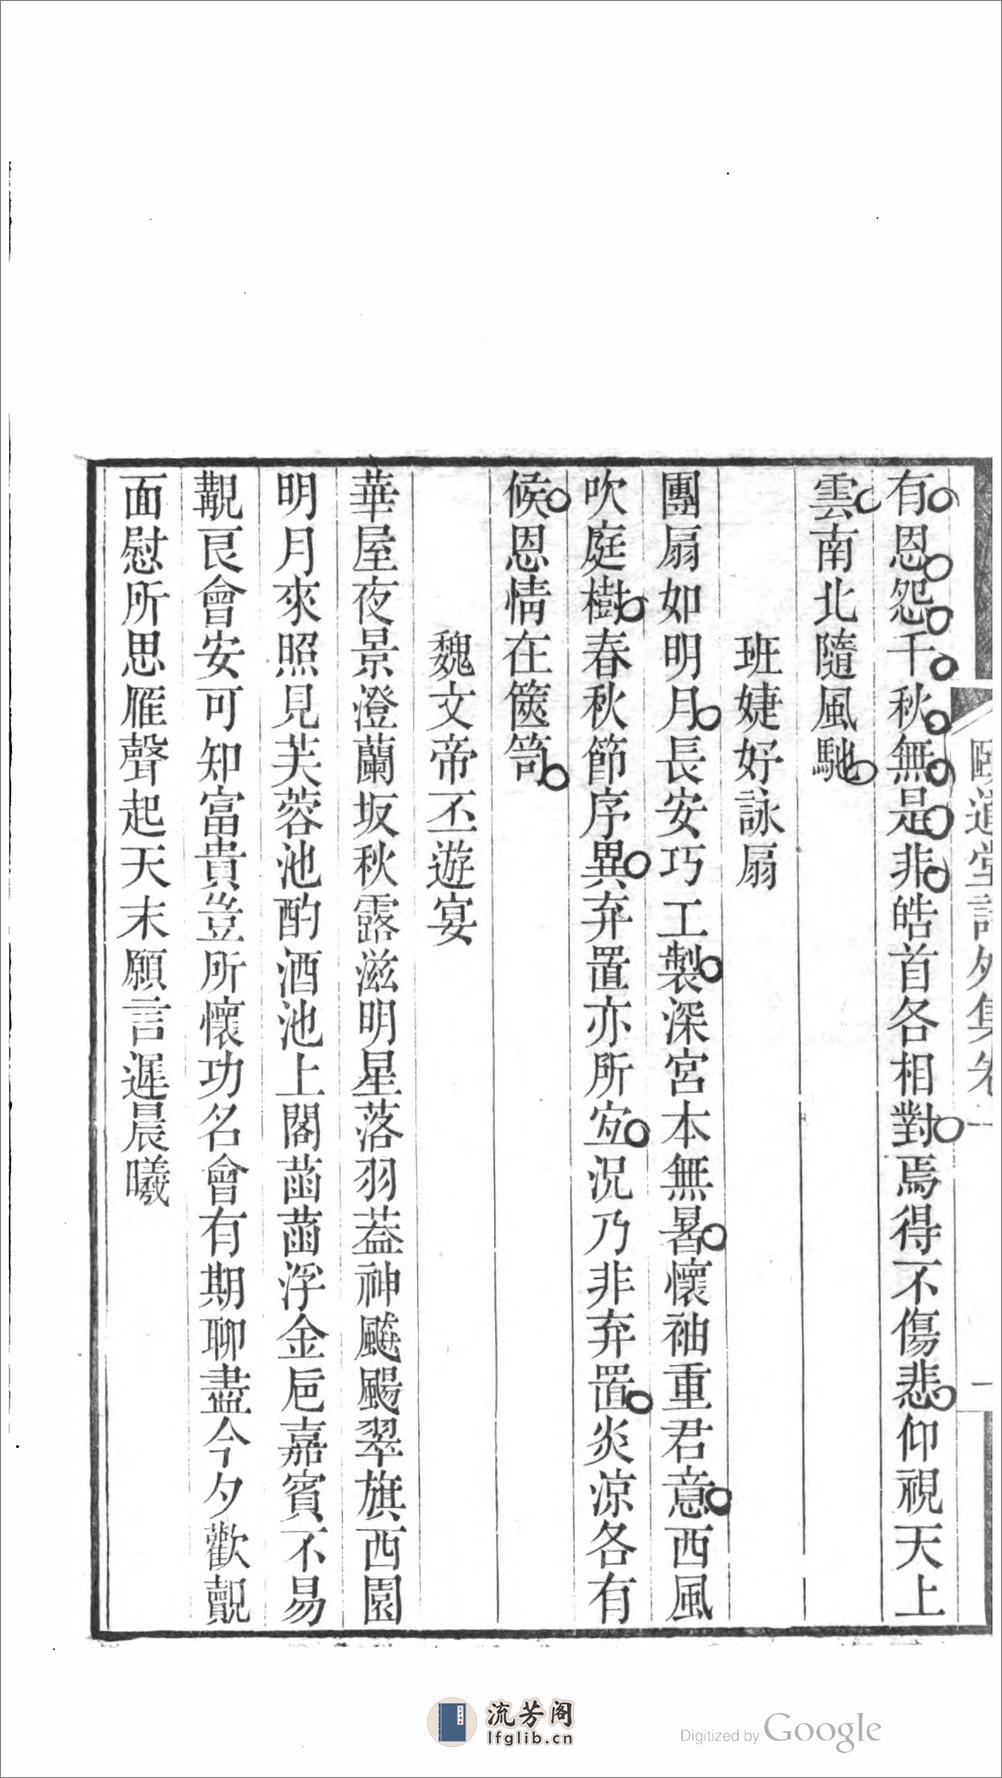 頤道堂詩外集卷一
一
有恩怨千秋無是非皓首各相對焉得不傷悲仰視天上
雲南北隨風馳
班婕妤詠扇
團扇如明月長安巧工製深宮本無暑懷袖重君意西風
吹庭樹春秋節序異弃置亦所宐況乃非弃置炎涼各有
候恩情在篋笥
魏文帝丕遊宴
華屋夜景澄蘭坂秋露滋明星落羽葢神飈颺翠旗西園
明月來照見芙蓉池酌酒池上閣菡萏浮金巵嘉賓不易
覯良會安可知富貴豈所懷功名會有期聊盡今夕歡覿
面慰所思雁聲起天末願言遲晨曦
流芳阁
lfglib.cn
Digitized by Google